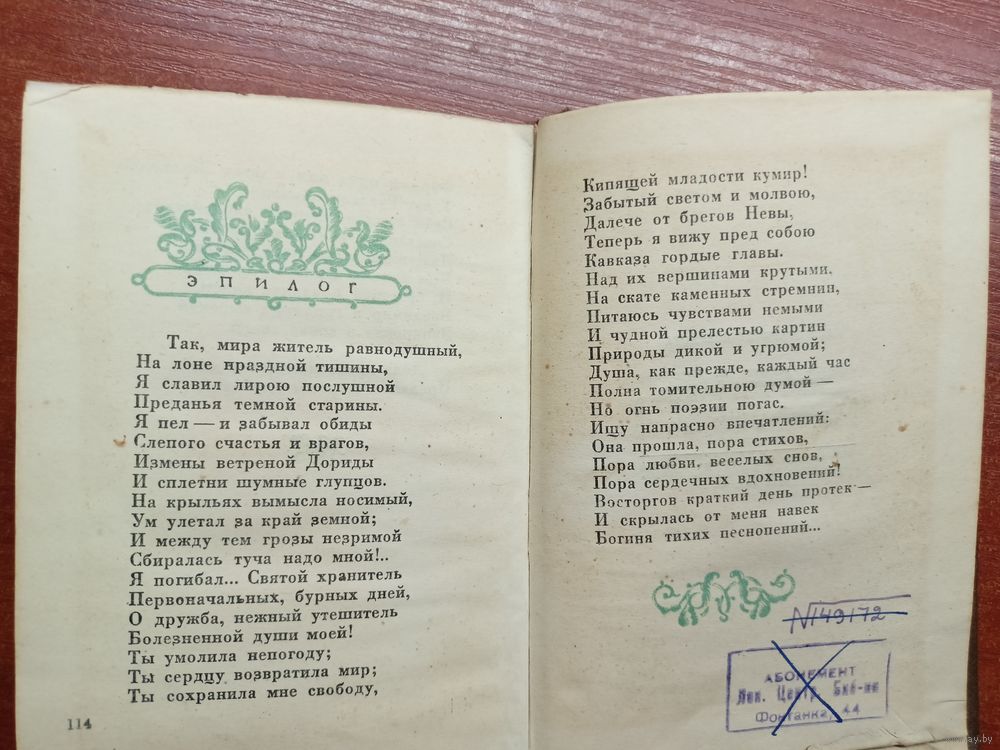 ЭПИЛОГ
Так, мира житель равнодушный,
На лоне праздной тишины,
Я славил лирою послушной
Преданья темной старины.
Я пел — и забывал обиды
Слепого счастья и врагов,
Измены ветреной Дориды
И сплетни шумные глупцов.
На крыльях вымысла носимый,
Ум улетал за край земной;
И между тем грозы незримой
Сбиралась туча надо мной!..
Я погибал... Святой хранитель
Первоначальных, бурных дней,
О дружба, нежный утешитель
Болезненной души моей!
Ты умолила непогоду;
Ты сердцу возвратила мир;
Ты сохранила мне свободу,
114
Кипящей младости кумир!
Забытый светом и молвою,
Далече от брегов Невы,
Теперь я вижу пред собою
Кавказа гордые главы.
Над их вершинами крутыми.
На скате каменных стремнин,
Питаюсь чувствами немыми
И чудной прелестью картин
Природы дикой и угрюмой;
Душа, как прежде, каждый час
Полна томительною думой —
Но огнь поэзии погас.
Ищу напрасно впечатлений:
Она прошла, пора стихов,
Пора любви, веселых снов,
Пора сердечных вдохновений!
Восторгов краткий день протек —
И скрылась от меня навек
Богиня тихих песнопений...
N149172
АБОНЕМЕНТ
Лен. Центр. Биб-ки
Фонтанка, 44
www.ay.by